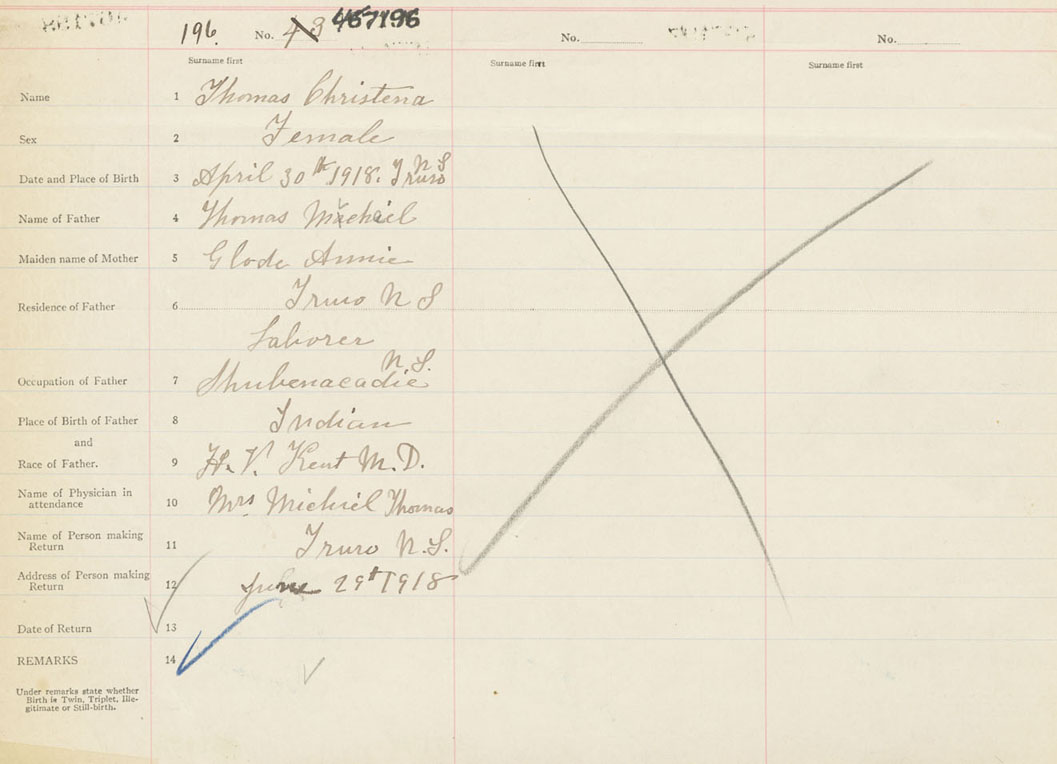 196. No. 43 467196 No. No.
Surname first Surname first Surname first
Name 1 Thomas Christena
Sex 2 Female
Date and Place of Birth 3 April 30th 1918. Truro N S
Name of Father 4 Thomas Michiel
Maiden name of Mother 5 Glode Annie
Residence of Father 6 Truro N S
Laborer
Occupation of Father 7 Shubenacadie N.S.
Place of Birth of Father 8 Indian
and
Race of Father. 9 H. V. Kent M.D.
Name of Physician in
attendance 10 Mrs Michiel Thomas
Name of Person making
Return 11 Truro N.S.
Address of Person making
Return 12 June 29th 1918
Date of Return 13
REMARKS 14
Under remarks state whether
Birth is Twin, Triplet, Ille-
gitimate or Still-birth.